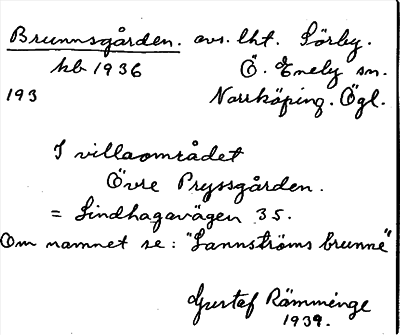 Brunnsgården. avs. lht. Sörby.
kb 1936 Ö. Eneby sn.
193 Norrköping. Ögl.
I villaområdet
Övre Pryssgården.
= Lindhagavägen 35.
Om namnet se: "Lannströms brunne"
Gustaf Rämminge
1939.